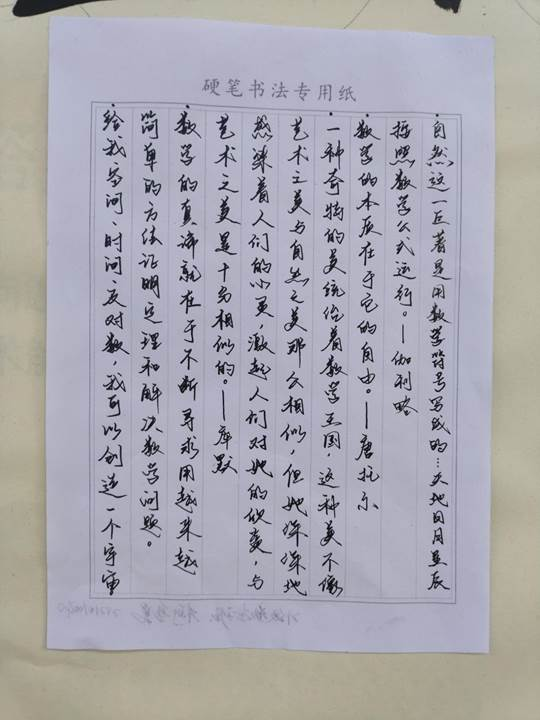 硬笔书法专用纸
自然这一巨著是用数学符号写成的…天地日月星辰
按照数学公式运行。—伽利略
数学的本质在于它的自由。—康托尔
一种奇特的美统治着数学王国，这种美不像
艺术之美与自然之美那么相似，但她深深地
感染着人们的心灵，激起人们对她的欣赏，与
艺术之美是十分相似的。—库默
数学的真谛就在于不断寻求用越来越
简单的方法证明定理和解决数学问题。
给我空间、时间、反对数 我可以创造一个宇宙